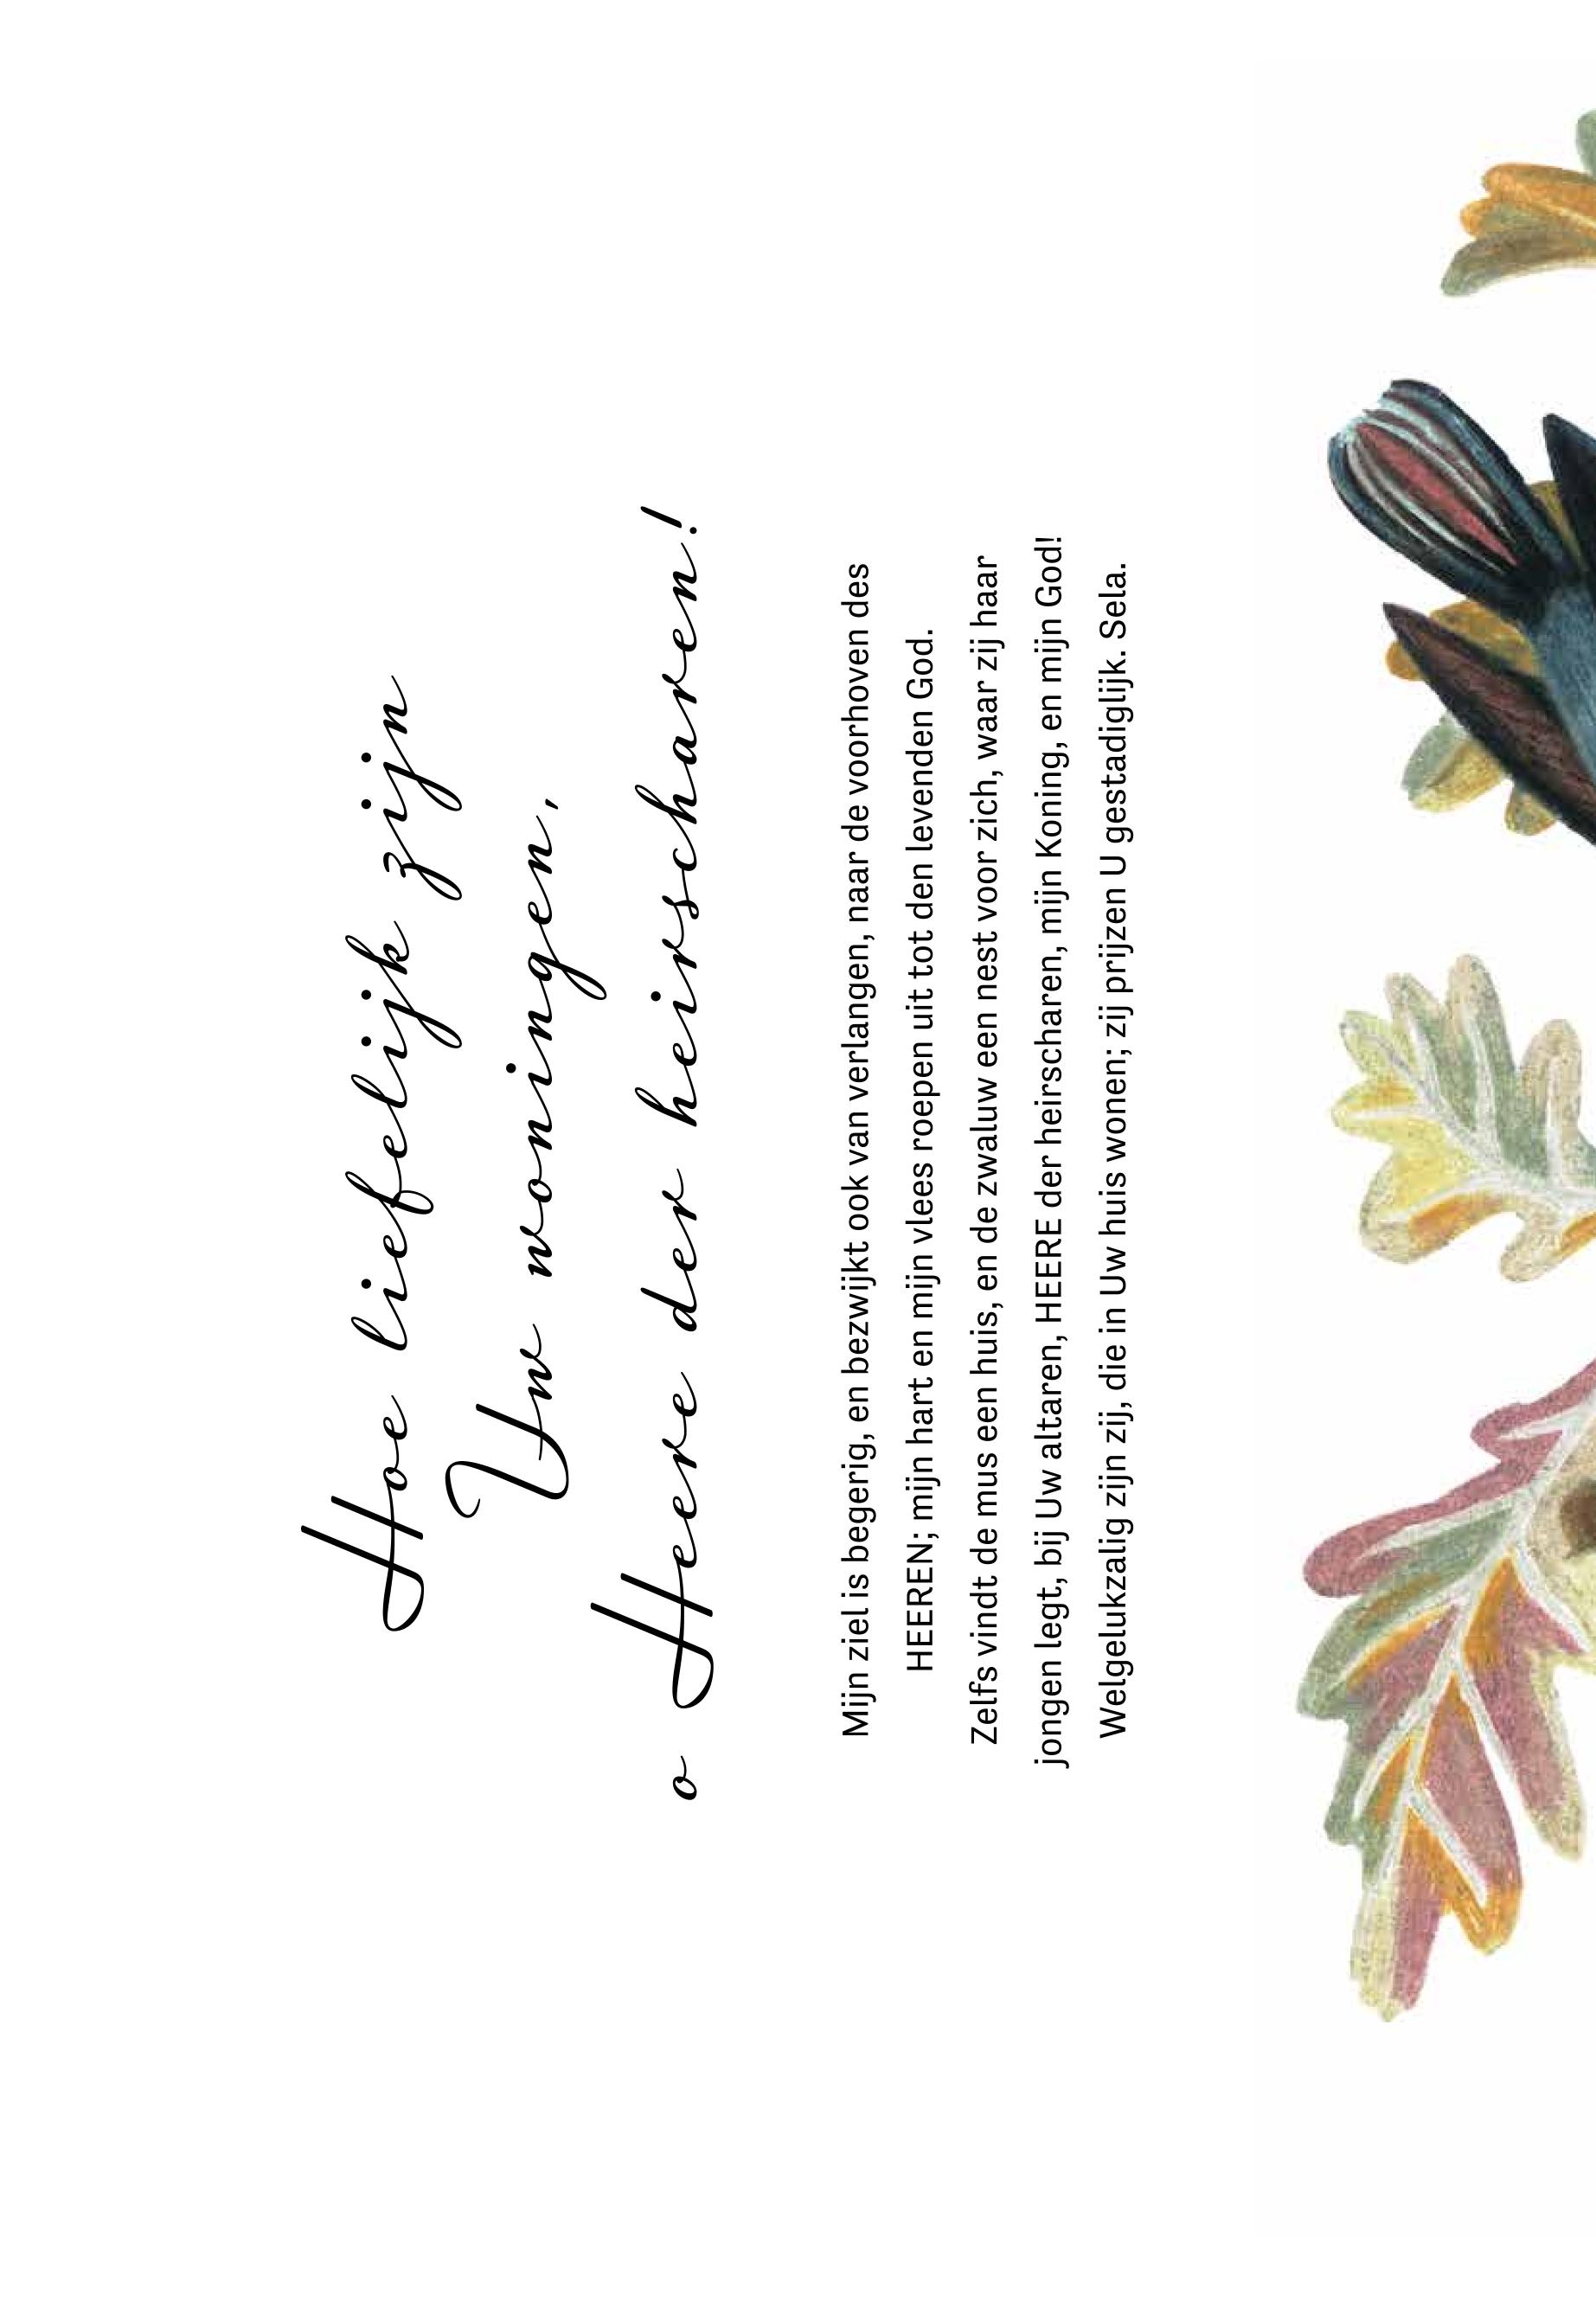 Hoe liefelijk zijn
Uw woningen,
o Heere der heirscharen!
Mijn ziel is begerig, en bezwijkt ook van verlangen, naar de voorhoven des
HEEREN; mijn hart en mijn vlees roepen uit tot den levenden God.
Zelfs vindt de mus een huis, en de zwaluw een nest voor zich, waar zij haar
jongen legt, bij Uw altaren, HEERE der heirscharen, mijn Koning, en mijn God!
Welgelukzalig zijn zij, die in Uw huis wonen; zij prijzen U gestadiglijk. Sela.